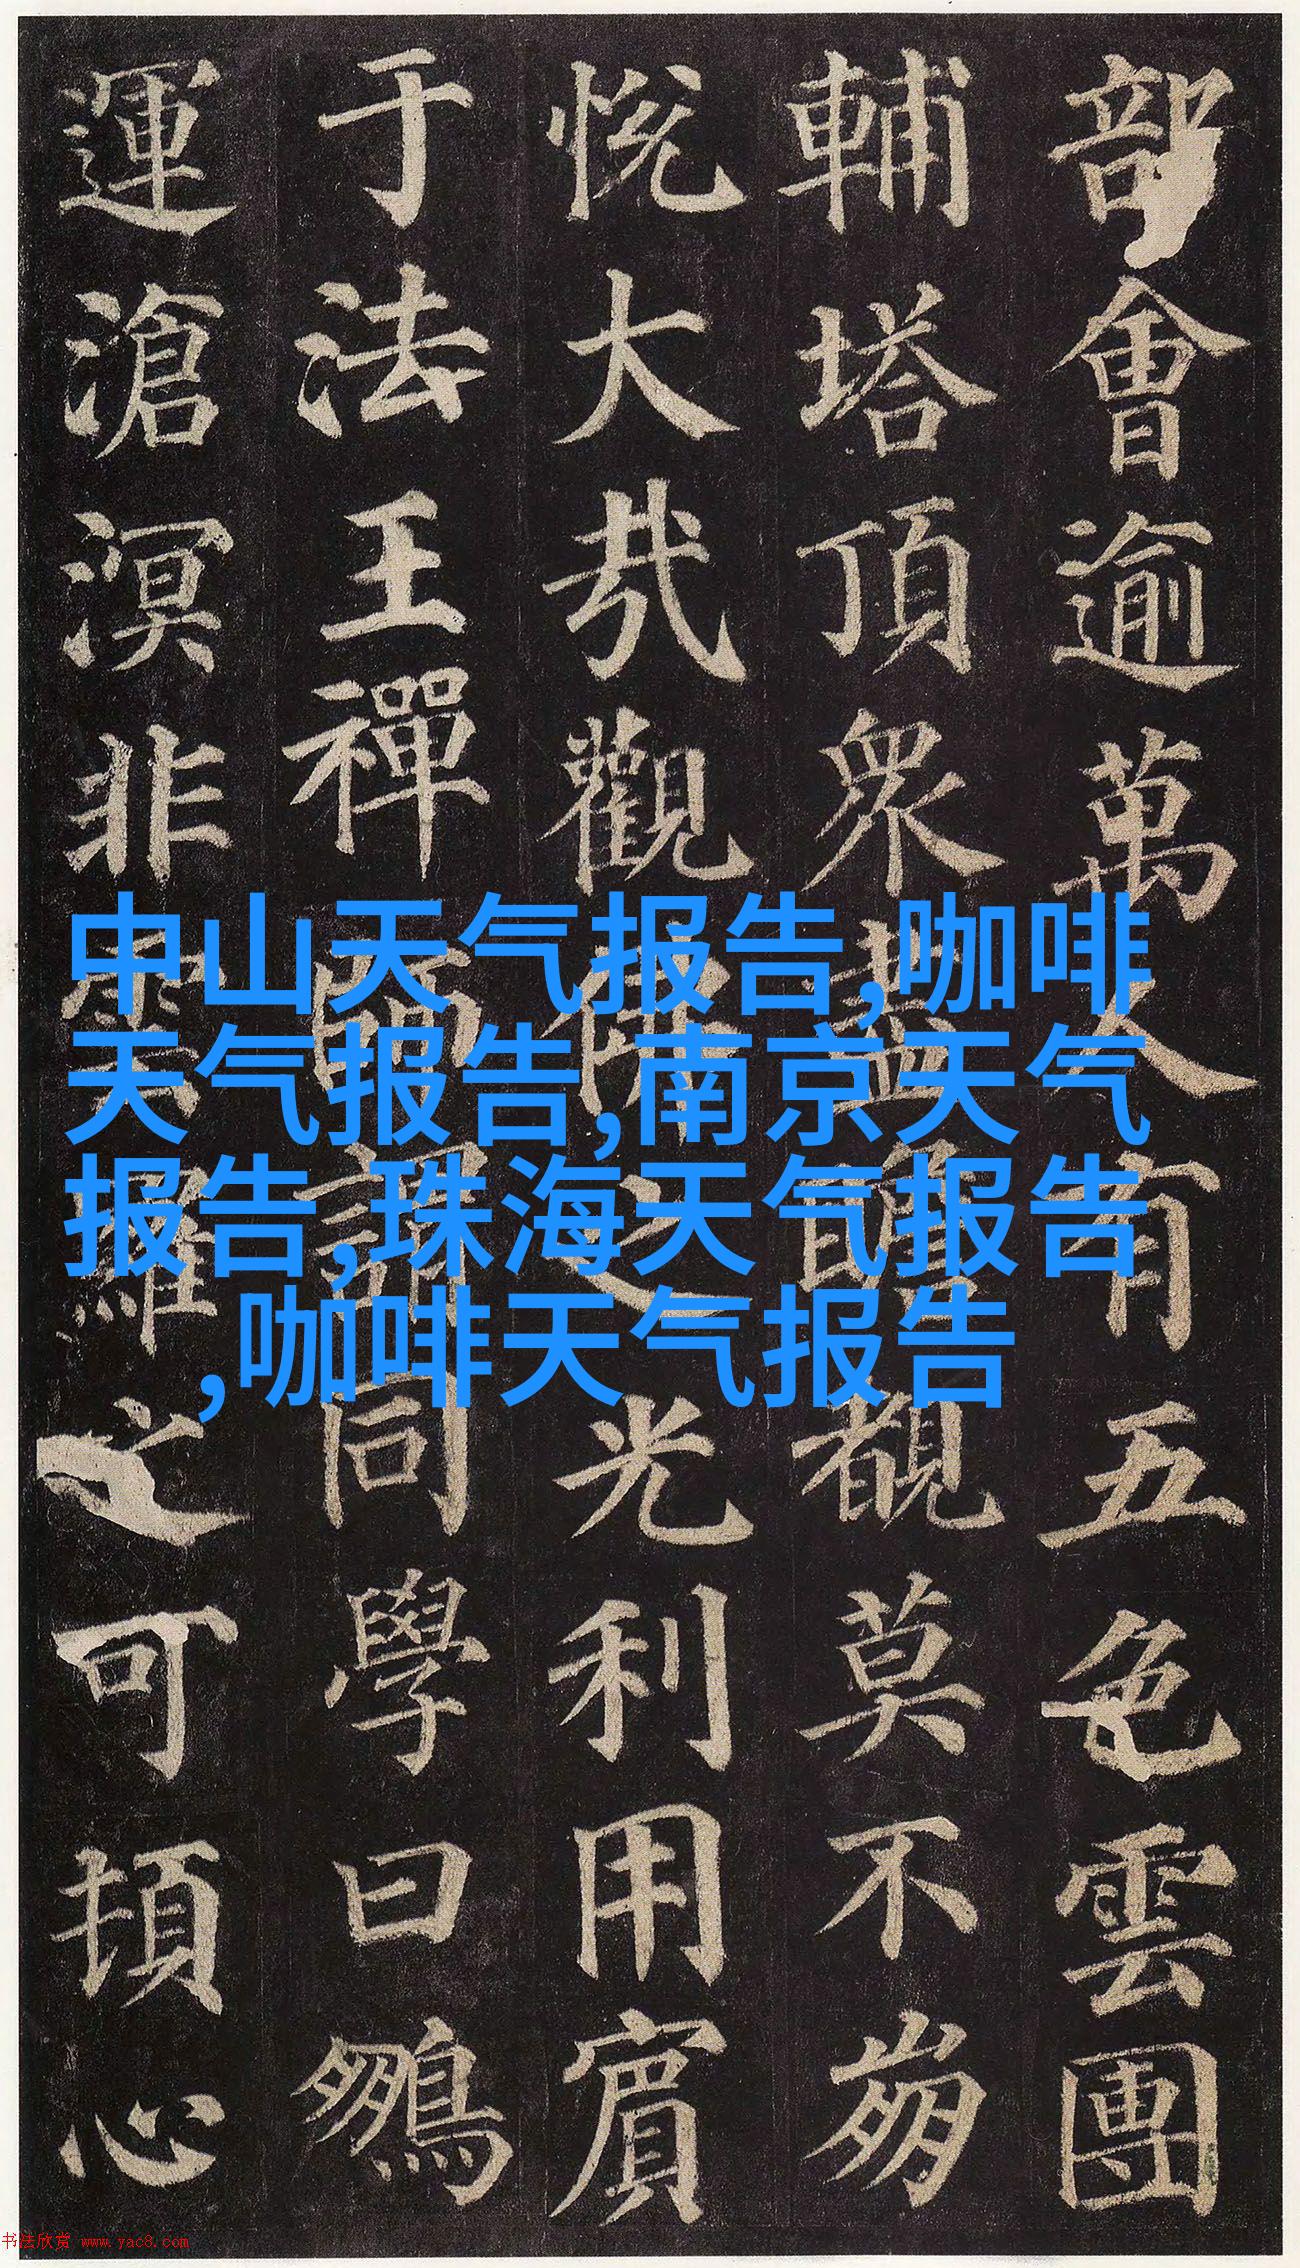 部會逾萬人有五色雲團
輔塔頂衆盡瞻覩莫不崩
悅大哉觀佛之光利用賓
于法王禪師謂同學曰鵬
運滄溟非雲羅之可頓心
中山天气报告,咖啡
天气报告,南京天气
报告,珠海天气报告
,咖啡天气报告
书法欣赏 www.yac8.com